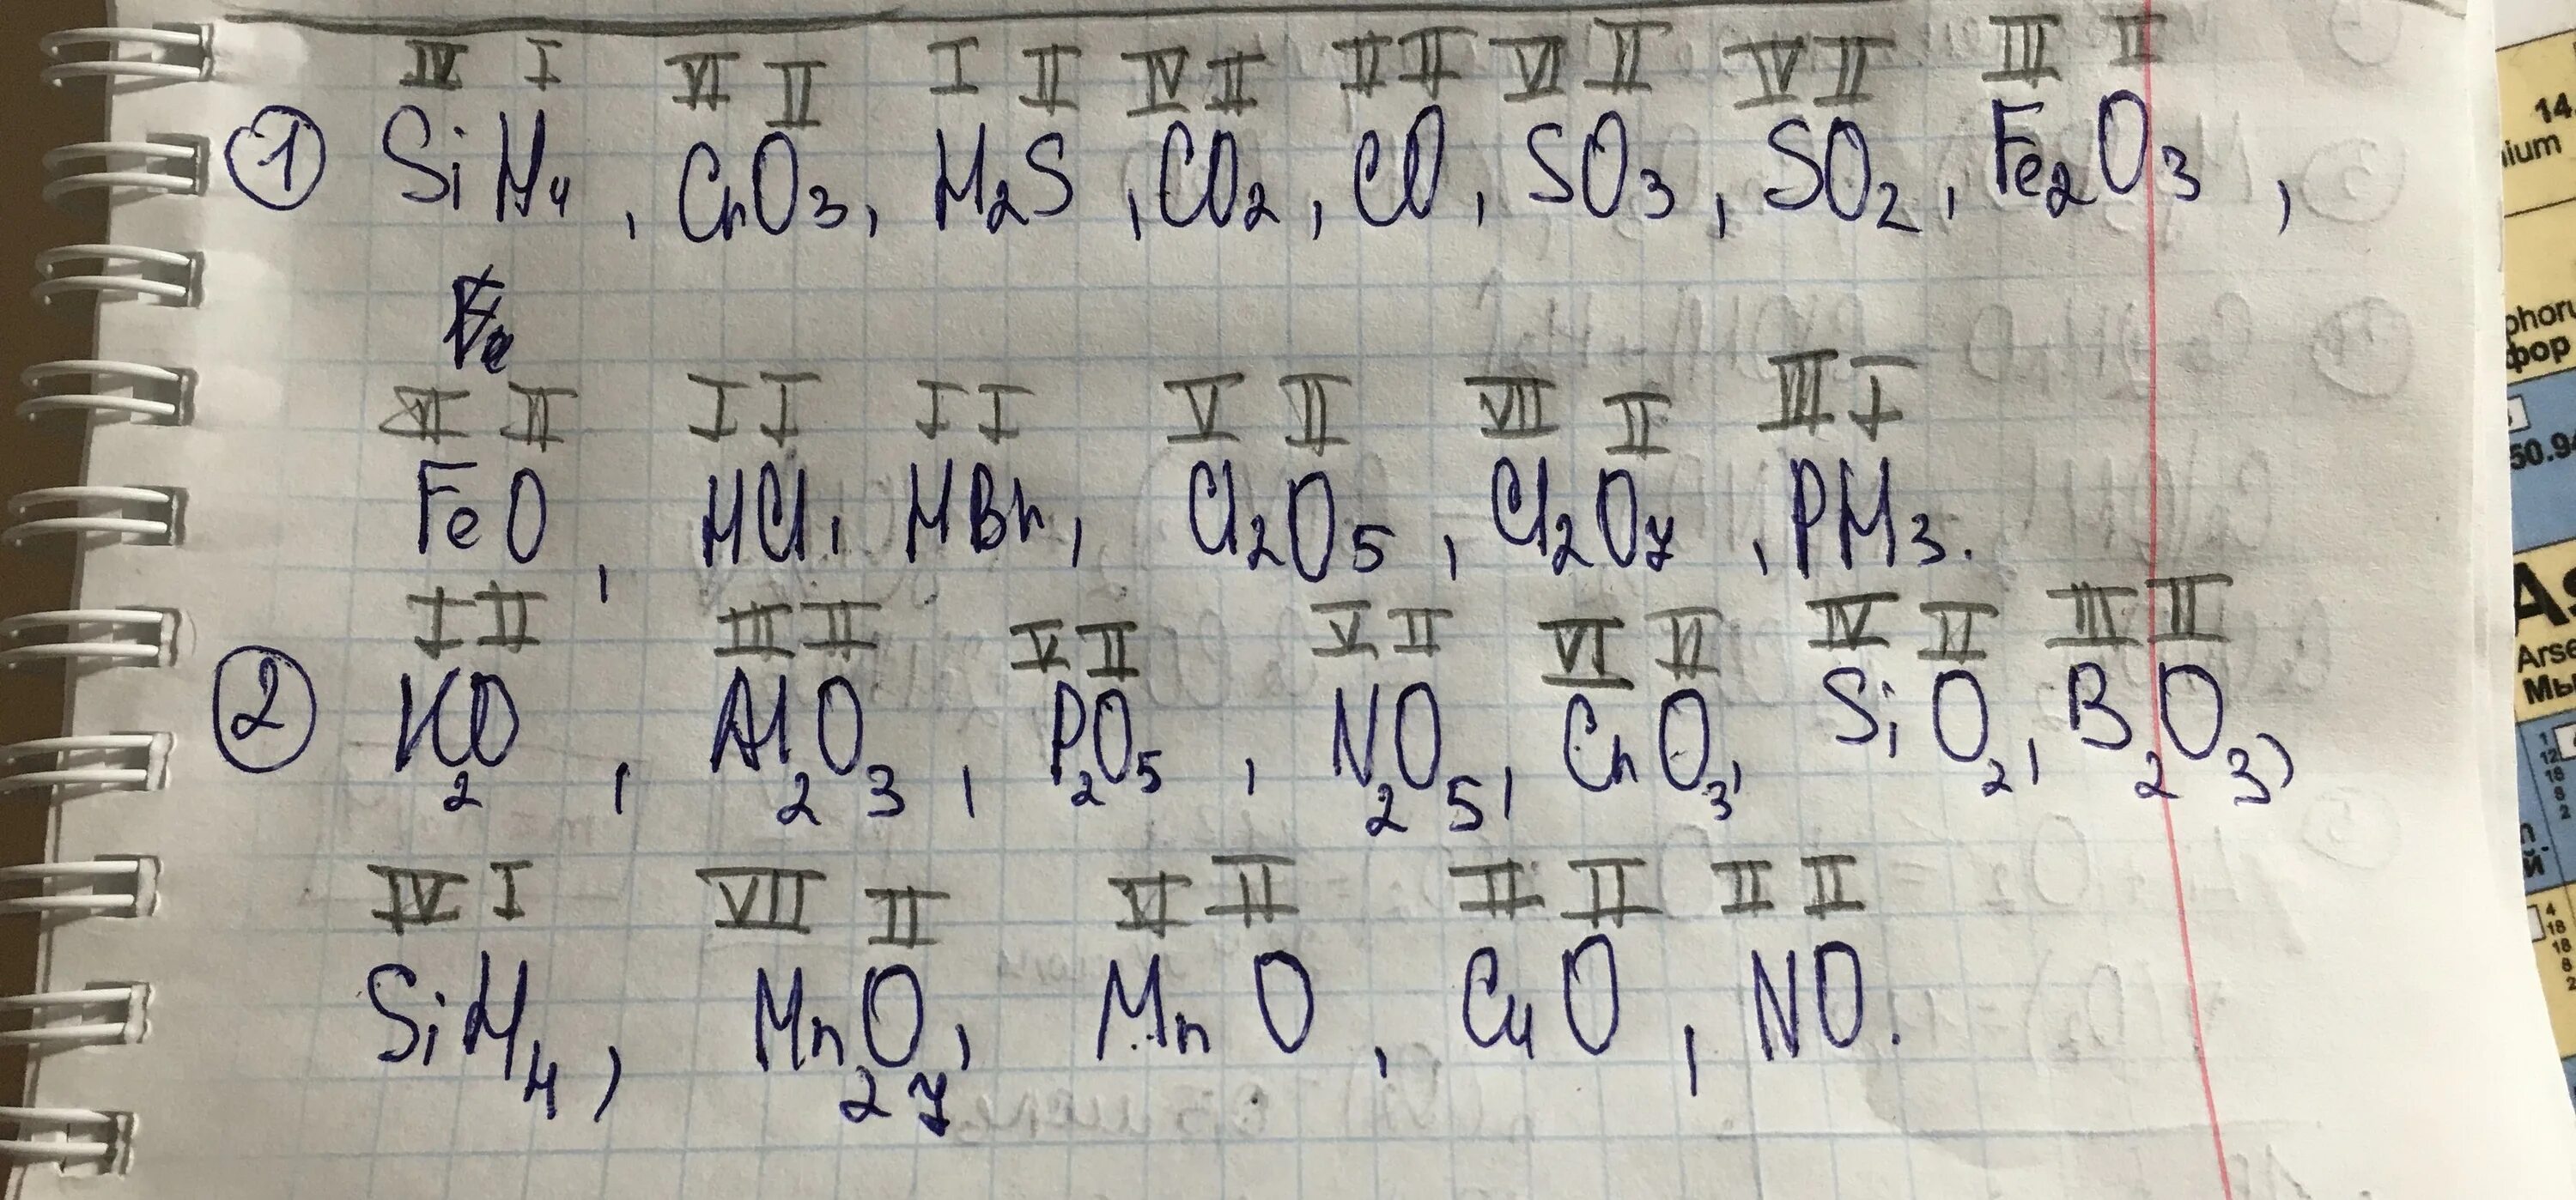 IV I VI II I II IV II II II VI II IV II III II
① SiH₄, CrO₃, H₂S, CO₂, CO, SO₃, SO₂, Fe₂O₃,
II II I I I I V II VII II III I
FeO, HCl, HBr, Cl₂O₅, Cl₂O₇, PH₃.
I II III II V II V II VI II IV II III II
② K₂O, Al₂O₃, P₂O₅, N₂O₅, CrO₃, SiO₂, B₂O₃,
IV I VII II II II II II II II
SiH₄, Mn₂O₇, MnO, CuO, NO.
14.
ium
phoru
фор
50.94
As
Arse
Мы